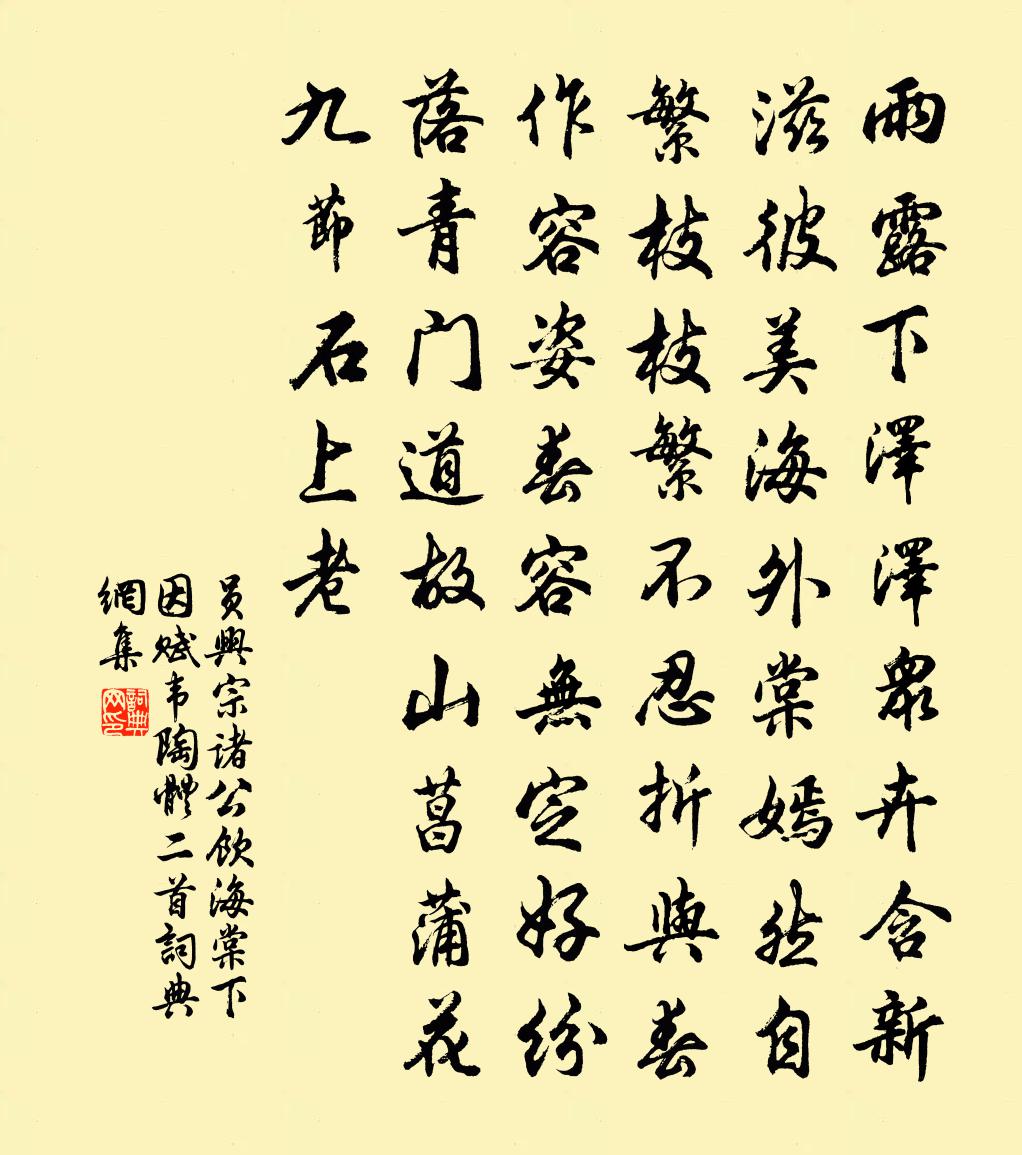 雨露下澤澤眾卉含新
滋彼美海外棠嫣然自
繁枝枝繁不忍折與春
作容姿春容無定好紛
落青門道故山菖蒲花
九節石上老
员興宗諸公飲海棠下
因赋韦陶體二首詞典
網集
詞典
网印